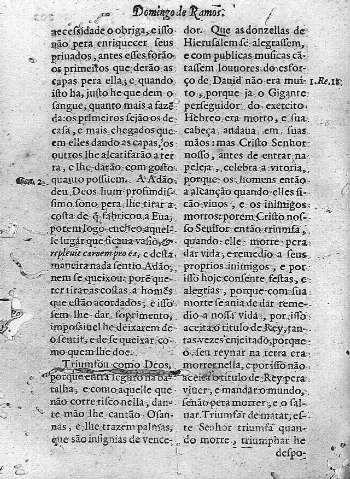 Domingo de Ramos.
necessidade o obriga, e isso
não pera enriquecer seus
privados, antes esses forão
os primeiros que derão as
capas pera ella; e quando
isto ha, justo he que dem o
sangue, quanto mais a fazẽ
da: os primeiros sejão os de
casa, e mais chegados que
em elles dando as capas, os
outros lhe alcatifarão a ter
ra, e lhe darão com gosto
quanto possuem. A Adão
deu Deos hum profundissi
simo sono pera lhe tirar a
costa de q̃ fabricou a Eua,
porem logo encheo aquel-
le lugar que ficaua vasio, &
repleuit carnem pro ea, e desta
maneira nada sentio Adão,
nem se queixou: porẽ que-
ter tirar costas a homẽs
que estão acordados, e isso
sem lhe dar soprimento,
impossiuel he deixarem de
o sentir, e de se queixar, co-
mo quem lhe doe.
Triumfou como Deos,
porque entra seguro na ba-
talha, e como aquelle que
não corre risco nella, dan-
te mão lhe cantão Osan-
nas, e lhe trazem palmas,
que são insignias de vence-
dor. Que as donzellas de
Hierusalem se alegrassem,
e com publicas musicas cã-
tassem louuores do esfor-
ço de Dauid não era mui-
to, porque ja o Gigante
perseguidor do exercito
Hebreo era morto, e sua
cabeça andaua em suas
mãos: mas Cristo Senhor
nosso, antes de entrar na
peleja, celebra a vitoria,
porque os homens então
a alcanção quando elles fi-
cão viuos, e os inimigos
mortos: porem Cristo nos-
so Senhor então triumfa,
quando elle morre pera
dar vida, e remedio a seus
proprios inimigos, e por
isso hoje consente festas, e
alegrias, porque com sua
morte se ania de dar reme-
dio a nossa vida, por isso
aceita o titulo de Rey, tan-
tas vezes enjeitado, porque
o seu reynar na terra era
morrer nella, e por isso não
aceita o titulo de Rey pera
viuer, e mandar o mundo,
senão pera morrer, e o sal-
uar. Triumfar de matar, es-
te Senhor triumfa quan-
do morre, triumphar he
despo-
1. Re. 18.